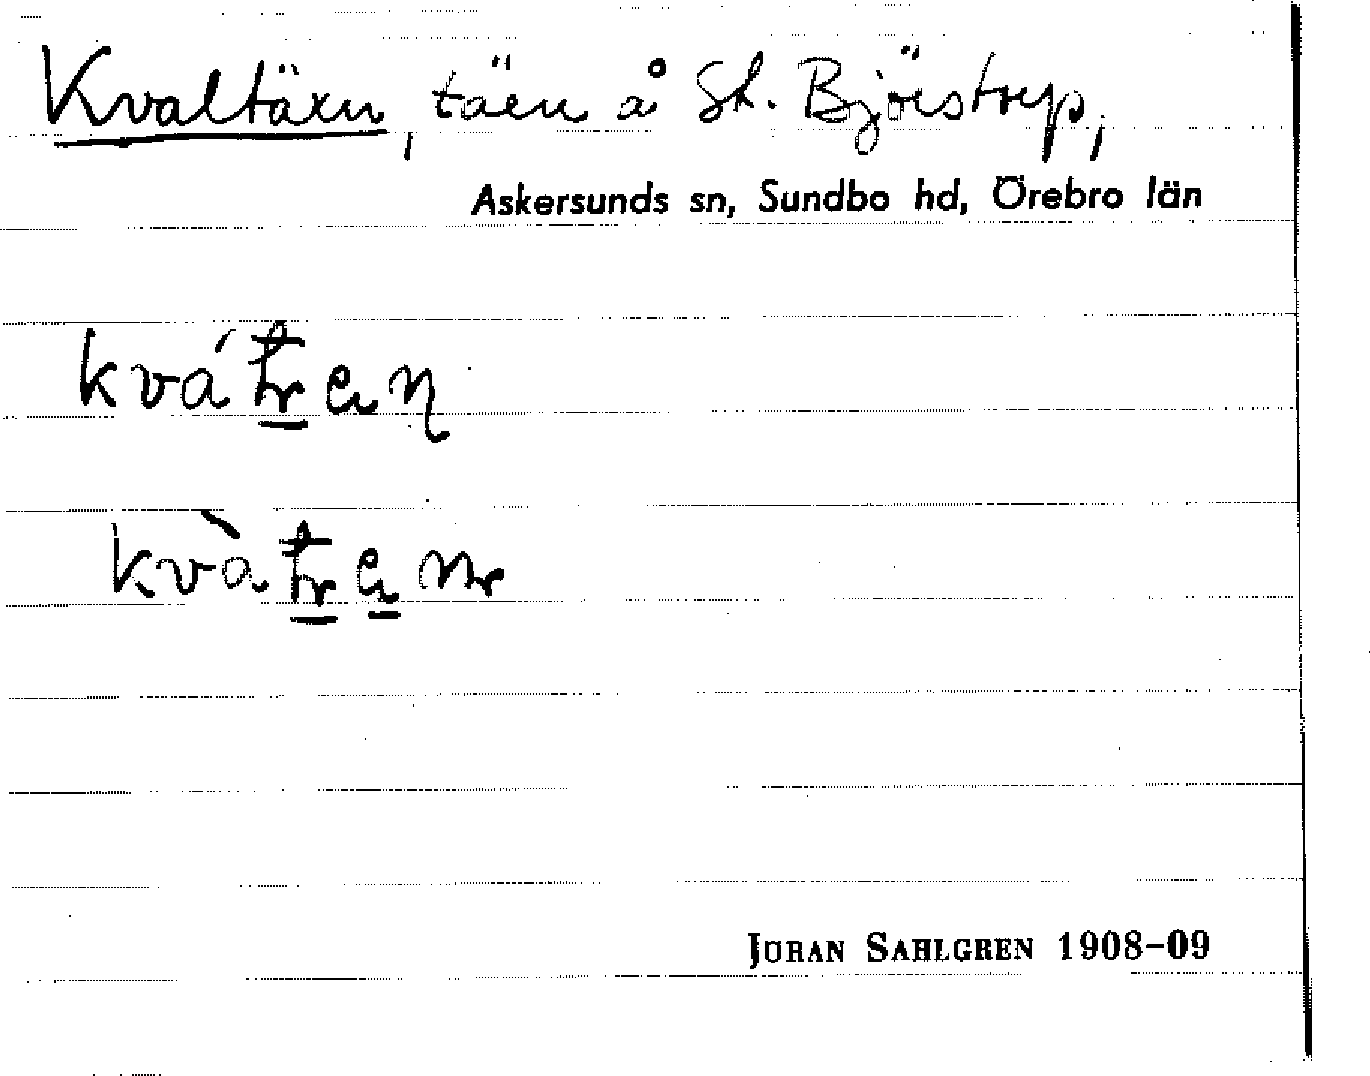 Kvaltäen, täen å St. Björstorp,
Askersunds sn, Sundbo hd, Örebro län
JÖRAN SAHLGREN 1908-09